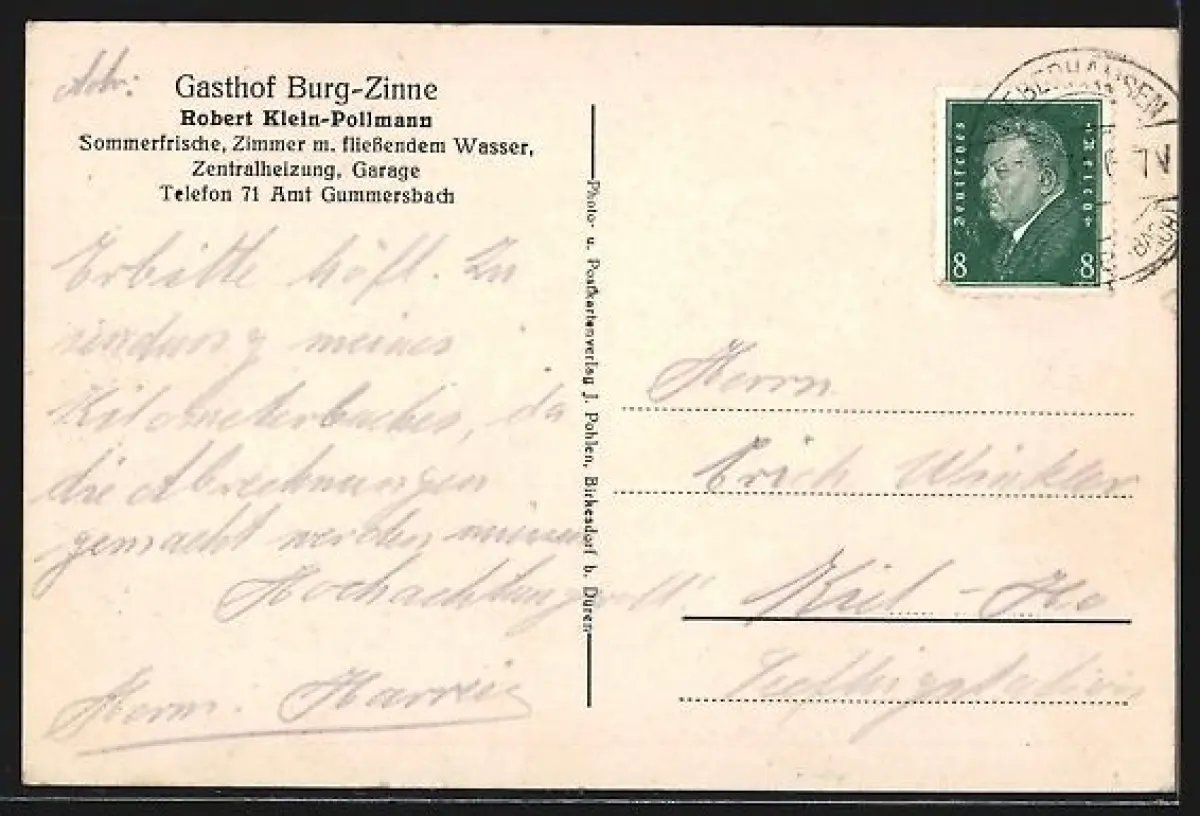 Adr:
Gasthof Burg-Zinne
Robert Klein-Pollmann
Sommerfrische, Zimmer m. fließendem Wasser,
Zentralheizung, Garage
Telefon 71 Amt Gummersbach
Erbitte höfl. Zu
meines
Kilometerbuches, da
die Abrechnungen
gemacht werden müssen
Hochachtungsvoll
Herm.
Photo- u. Postkartenverlag J. Pohlen, Birkesdorf b. Düren
Deutsches Reich
8 8
Herrn
Erich Winkler